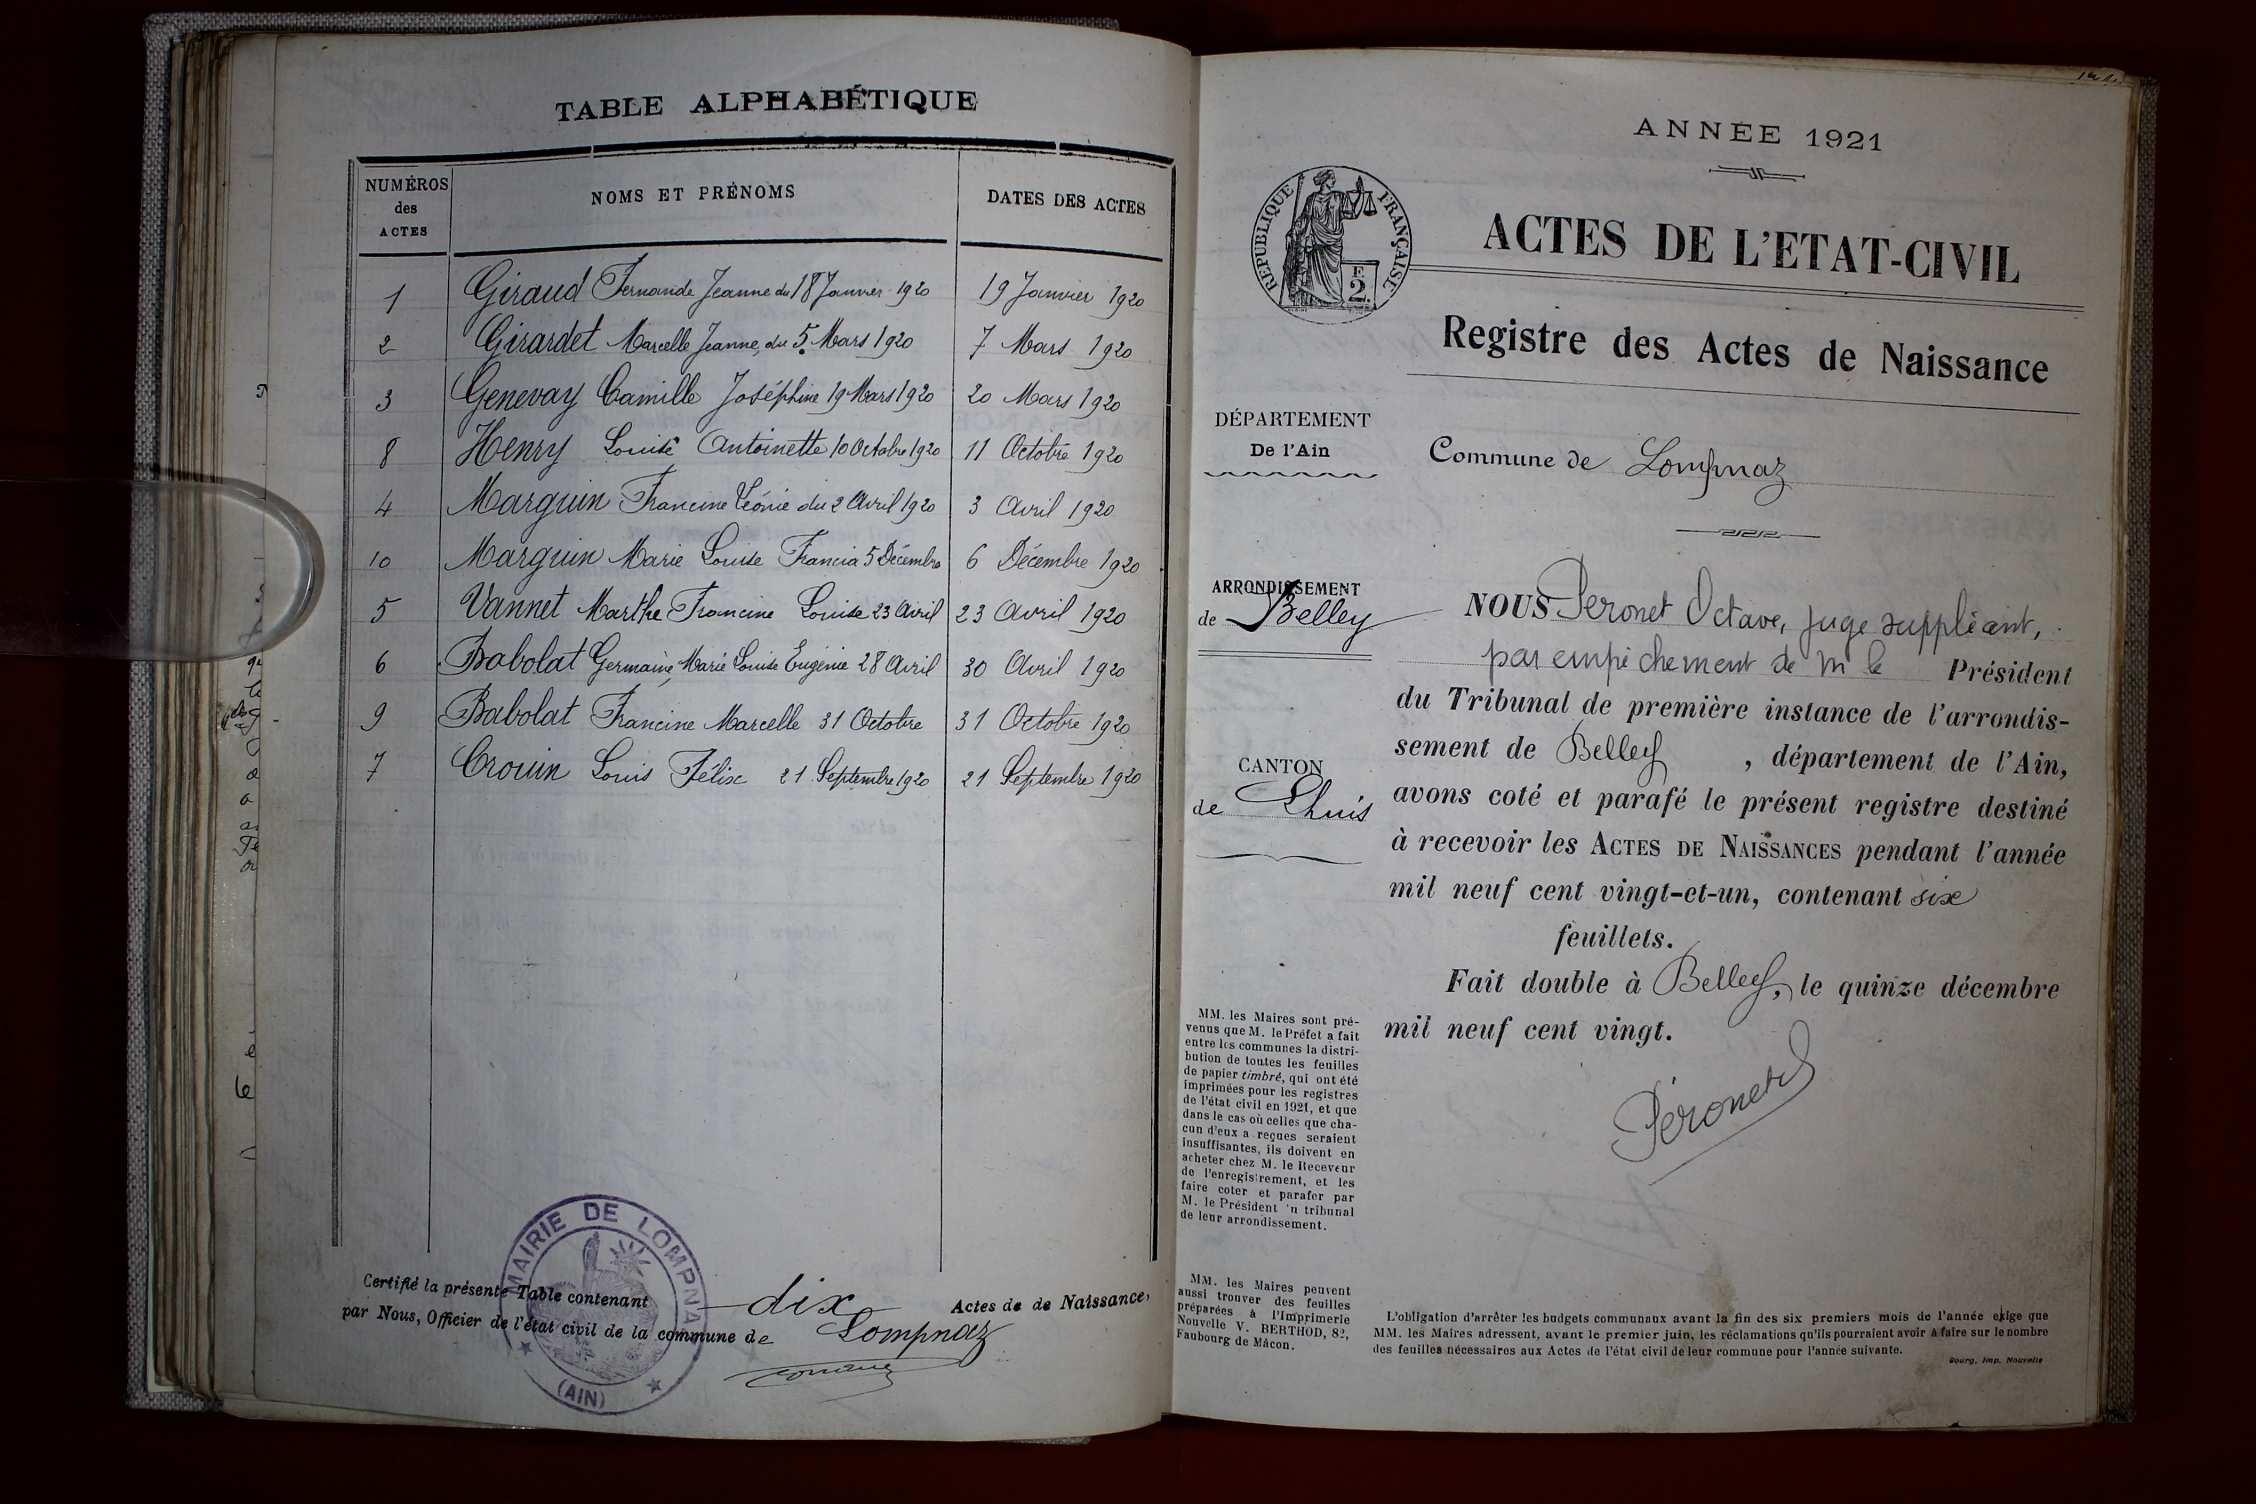 TABLE ALPHABÉTIQUE
NUMÉROS des ACTES
NOMS ET PRÉNOMS
DATES DES ACTES
1 Giraud Fernande Jeanne du 18 Janvier 1920 19 Janvier 1920
2 Girardet Marcelle Jeanne, du 5 Mars 1920 7 Mars 1920
3 Genevay Camille Joséphine 19 Mars 1920 20 Mars 1920
8 Henry Louise Antoinette 10 Octobre 1920 11 Octobre 1920
4 Marguin Francine Léonie du 2 Avril 1920 3 Avril 1920
10 Marguin Marie Louise Francia 5 Décembre 6 Décembre 1920
5 Vannet Marthe Francine Louise 23 Avril 23 Avril 1920
6 Babolat Germaine Marie Louise Eugénie 28 Avril 30 Avril 1920
9 Babolat Francine Marcelle 31 Octobre 31 Octobre 1920
7 Crouin Louis Félix 21 Septembre 1920 21 Septembre 1920
MAIRIE DE LOMPNAZ
(AIN)
Certifié la présente Table contenant dix Actes de de Naissance,
par Nous, Officier de l'état civil de la commune de Lompnaz
ANNÉE 1921
RÉPUBLIQUE FRANÇAISE
F.
2.
ACTES DE L'ETAT-CIVIL
Registre des Actes de Naissance
DÉPARTEMENT
De l'Ain
Commune de Lompnaz
ARRONDISSEMENT
de Belley
CANTON
de Lhuis
NOUS Peronet Octave, juge suppléant,
par empêchement de M le Président
du Tribunal de première instance de l'arrondis-
sement de Belley, département de l'Ain,
avons coté et parafé le présent registre destiné
à recevoir les ACTES DE NAISSANCES pendant l'année
mil neuf cent vingt-et-un, contenant six
feuillets.
Fait double à Belley, le quinze décembre
mil neuf cent vingt.
Péronet
MM. les Maires sont pré-
venus que M. le Préfet a fait
entre les communes la distri-
bution de toutes les feuilles
de papier timbré, qui ont été
imprimées pour les registres
de l'état civil en 1921, et que
dans le cas où celles que cha-
cun d'eux a reçues seraient
insuffisantes, ils doivent en
acheter chez M. le Receveur
de l'enregistrement, et les
faire coter et parafer par
M. le Président 'u tribunal
de leur arrondissement.
MM. les Maires peuvent
aussi trouver des feuilles
préparées à l'Imprimerie
Nouvelle V. BERTHOD, 82,
Faubourg de Mâcon.
L'obligation d'arrêter les budgets communaux avant la fin des six premiers mois de l'année exige que
MM. les Maires adressent, avant le premier juin, les réclamations qu'ils pourraient avoir à faire sur le nombre
des feuilles nécessaires aux Actes de l'état civil de leur commune pour l'année suivante.
Bourg, Imp. Nouvelle